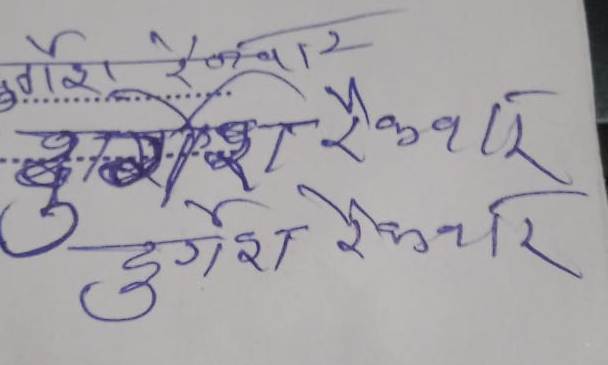 दुर्गेश रैकवार
दुर्गेश रैकवार
दुर्गेश रैकवार